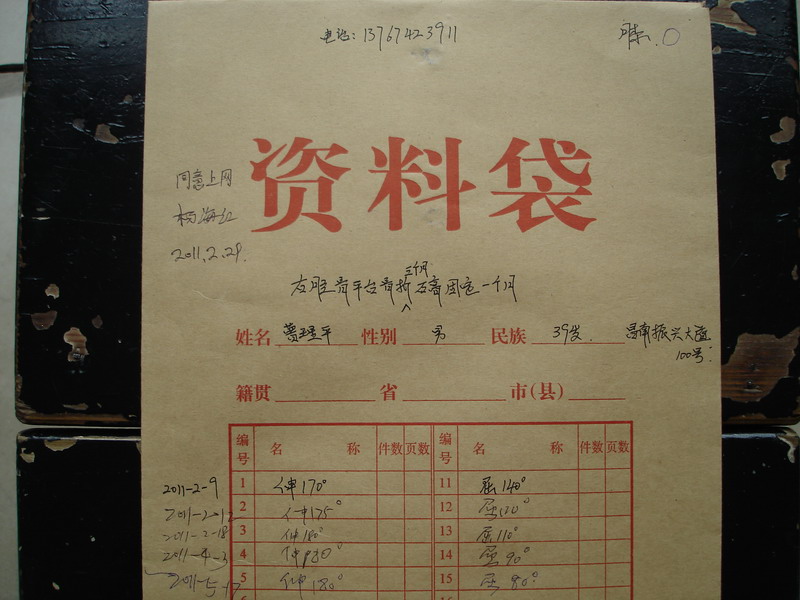 电话: 13767423911
资料袋
同意上网
杨海红
2011.2.29.
三个月
平台骨折石膏固定一个月
姓名 平 性别 男 民族 39岁. 昌南振兴大道
100号.
籍贯 省 市(县)
编号 名 称 件数 页数 编号 名 称 件数 页数
2011-2-9 1 伸170° 11 屈140°
2011-2-12 2 伸175° 12 屈120°
2011-2-18 3 伸180° 13 屈110°
2011-4-3 4 伸180° 14 屈90°
2011-5-17 5 伸180° 15 屈80°